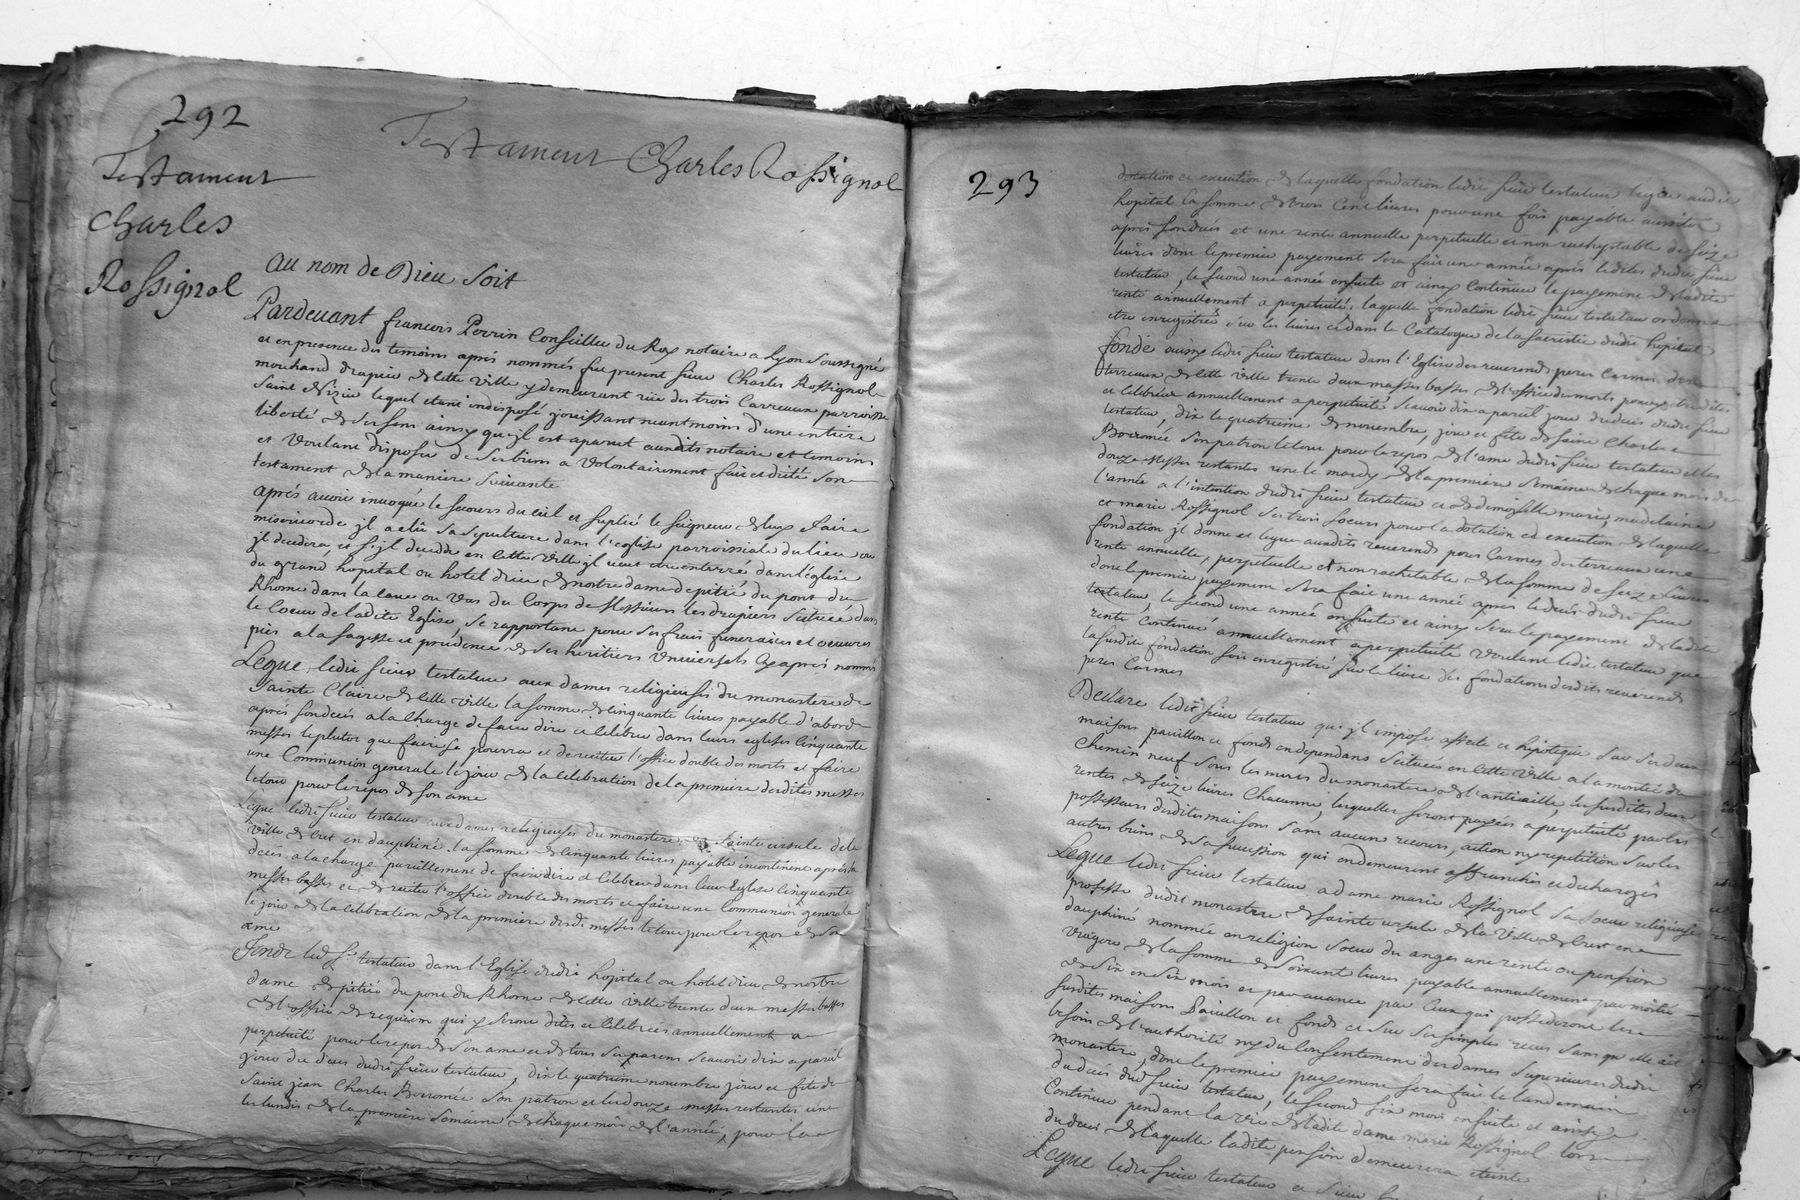 292
Testament
Charles
Rossignol
Testament Charles Rossignol
Au nom de Dieu soit
Pardevant francois Perrin Conseiller du Roy notaire a Lyon soussigné
et en presence des temoins aprés nommés fut present sieur Charles Rossignol
marchand drapier de cette ville y demeurant rüe des trois Carreaux parroisse
Saint Nizier lequel etant indisposé joüissant neantmoins d'une entiere
liberté de ses sens ainsy qu'jl est aparut auxdits notaire et temoins
et voulant disposer de ses biens a volontairement fait et dicté son
testament de la maniere suivante
aprés avoir invoqué le secours du ciel et suplié le seigneur de luy faire
misericorde jl a elû sa sepulture dans l'eglise parroissiale du lieu ou
jl decedera, et s'jl decede en cette ville jl veut etre enterré dans l'eglise
du grand hopital ou hotel dieu de nostre dame de pitié du pont du
Rhosne dans la cave ou vas du Corps de Messieurs les drapiers scituée dans
le Coeur de ladite Eglise se rapportant pour ses frais funeraires et oeuvres
pies a la sagesse et prudence de ses heritiers universels cy aprés nommés
Legue ledit sieur testateur aux dames religieuses du monastere de
Sainte Claire de cette ville la somme de cinquante livres payable d'abord
aprés son decés a la charge de faire dire et celebrer dans leurs eglises cinquante
messes le plutot que faire se pourra et de reciter l'office double des morts et faire
une Communion generale le jour de la celebration de la premiere desdites messes
le tout pour le repos de son ame
Legue ledit sieur testateur aux dames religieuses du monastere de Sainte ursule de la
ville de Crest en dauphiné la somme de cinquante livres payable incontinent aprés son
decés a la charge pareillement de faire dire et celebrer dans leur Eglise cinquante
messes basses et de reciter l'office double des morts et faire une Communion generale
le jour de la celebration de la premiere desd. messes le tout pour le repos de son
ame
Fonde led. Sr. testateur dans l'Eglise dudit hopital ou hotel dieu de nostre
dame de pitié du pont du Rhosne de cette ville trente deux messes basses
de l'office de requiem qui y seront dites et celebrées annuellement a
perpetuité pour le repos de son ame et de tous ses parens scavoir dix a pareil
jour du decés dudit sieur testateur, dix le quatrieme novembre jour et fete de
Saint jean Charles Borromée son patron et les douze messes restantes une
les lundis de la premiere semaine de chaque mois de l'année, pour la
293
dotation et execution de laquelle fondation ledit sieur testateur legue audit
hopital la somme de trois cent livres pour une fois payable aussitot
aprés son decés et une rente annuelle perpetuelle et non racheptable de seize
livres dont le premier payement sera fait une année aprés le decés dudit sieur
testateur, le second une année ensuite et ainsy Continuer le payement de ladite
rente annuellement a perpetuité, laquelle fondation ledit sieur testateur ordonne
etre enregistrée sur les livres et dans le Catalogue de la sacristie dudit hopital
Fonde aussy ledit sieur testateur dans l'Eglise des reverends peres Carmes des
terreaux de cette ville trente deux messes basses de l'office des morts pour y etre dites
et celebrées annuellement a perpetuité scavoir dix a pareil jour du decés dudit sieur
testateur, dix le quatrieme de novembre, jour et fete de saint Charles
Borromée son patron le tout pour le repos de l'ame dudit sieur testateur et les
douze messes restantes une le mardy de la premiere semaine de chaque mois de
l'année a l'intention dudit sieur testateur et de demoiselles marie, madelaine
et marie Rossignol ses trois soeurs pour la dotation et execution de laquelle
fondation jl donne et legue auxdits reverends peres Carmes des terreaux une
rente annuelle, perpetuelle et non rachetable de la somme de seize livres
dont le premier payement sera fait une année aprés le decés dudit sieur
testateur le second une année ensuite et ainsy sera le payement de ladite
rente Continué annuellement a perpetuité voulant ledit testateur que
la susdite fondation soit enregistrée sur le livre des fondations desdits reverends
peres Carmes
Declare ledit sieur testateur qu'jl impose affecte et hipoteque sur ses deux
maisons pavillon et fonds en dependans scitués en cette ville a la montée du
Chemin neuf sous les murs du monastere de l'antiquaille, les susdites deux
rentes de seize livres Chacunne, lesquelles seront payées a perpetuité par les
possesseurs desdites maisons sans aucun recours, action ny repetition sur les
autres biens de sa succession qui en demeurent affranchis et dechargés
Legue ledit sieur testateur a dame marie Rossignol sa soeur religieuse
professe dudit monastere de sainte ursule de la ville de Crest en
dauphiné nommée en religion soeur des anges une rente ou pension
viagere de la somme de soixante livres payable annuellement par moitié
de six en six mois et par avance par Ceux qui possederont les
susdites maisons Pavillon et fonds et sur ses simples recus sans qu'elle ait
besoin de l'authorité ny du Consentement des dames superieures dudit
monastere, dont le premier payement sera fait le landemain
du decés dud. sieur testateur, le second six mois ensuite et ainsy
Continuer pendant la vie de ladite dame marie Rossignol lors
du decés de laquelle ladite pension demeurera eteinte
Legue ledit sieur testateur a sieur